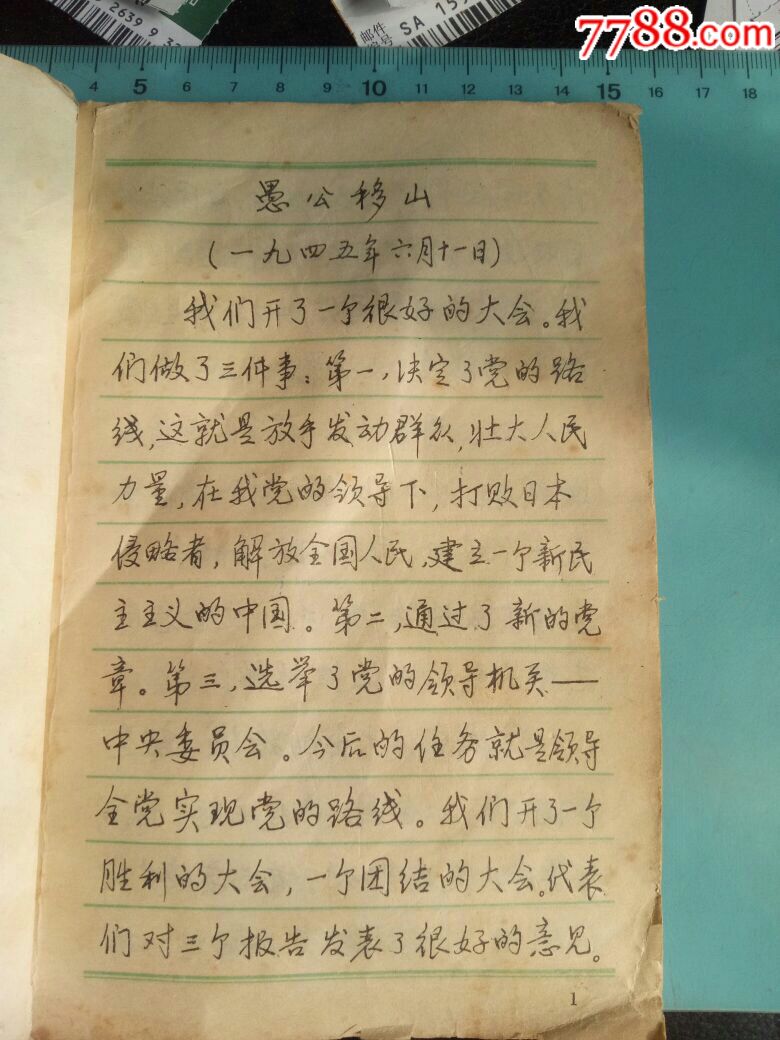 2639 9 32
邮件
号
SA 159
7788.com
4 5 6 7 8 9 10 11 12 13 14 15 16 17 18
愚公移山
（一九四五年六月十一日）
我们开了一个很好的大会。我
们做了三件事：第一，决定了党的路
线，这就是放手发动群众，壮大人民
力量，在我党的领导下，打败日本
侵略者，解放全国人民，建立一个新民
主主义的中国。第二，通过了新的党
章。第三，选举了党的领导机关——
中央委员会。今后的任务就是领导
全党实现党的路线。我们开了一个
胜利的大会，一个团结的大会。代表
们对三个报告发表了很好的意见。
1